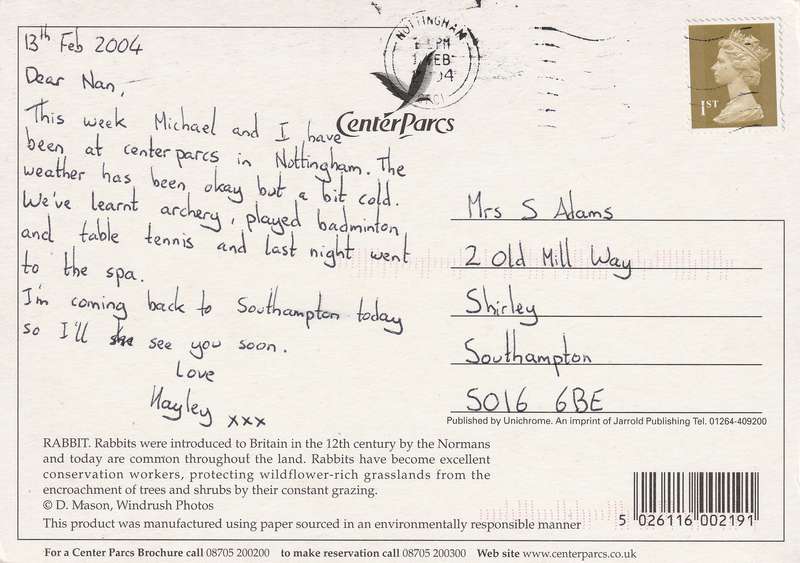 13th Feb 2004
Dear Nan,
This week Michael and I have
been at centerparcs in Nottingham. The
weather has been okay but a bit cold.
We've learnt archery, played badminton
and table tennis and last night went
to the spa.
I'm coming back to Southampton today
so I'll see you soon.
Love
Hayley xxx
NOTTINGHAM
FEB
CenterParcs
1ST
Mrs S Adams
2 Old Mill Way
Shirley
Southampton
SO16 6BE
Published by Unichrome. An imprint of Jarrold Publishing Tel. 01264-409200
RABBIT. Rabbits were introduced to Britain in the 12th century by the Normans
and today are common throughout the land. Rabbits have become excellent
conservation workers, protecting wildflower-rich grasslands from the
encroachment of trees and shrubs by their constant grazing.
© D. Mason, Windrush Photos
This product was manufactured using paper sourced in an environmentally responsible manner
5 026116 002191
For a Center Parcs Brochure call 08705 200200 to make reservation call 08705 200300 Web site www.centerparcs.co.uk